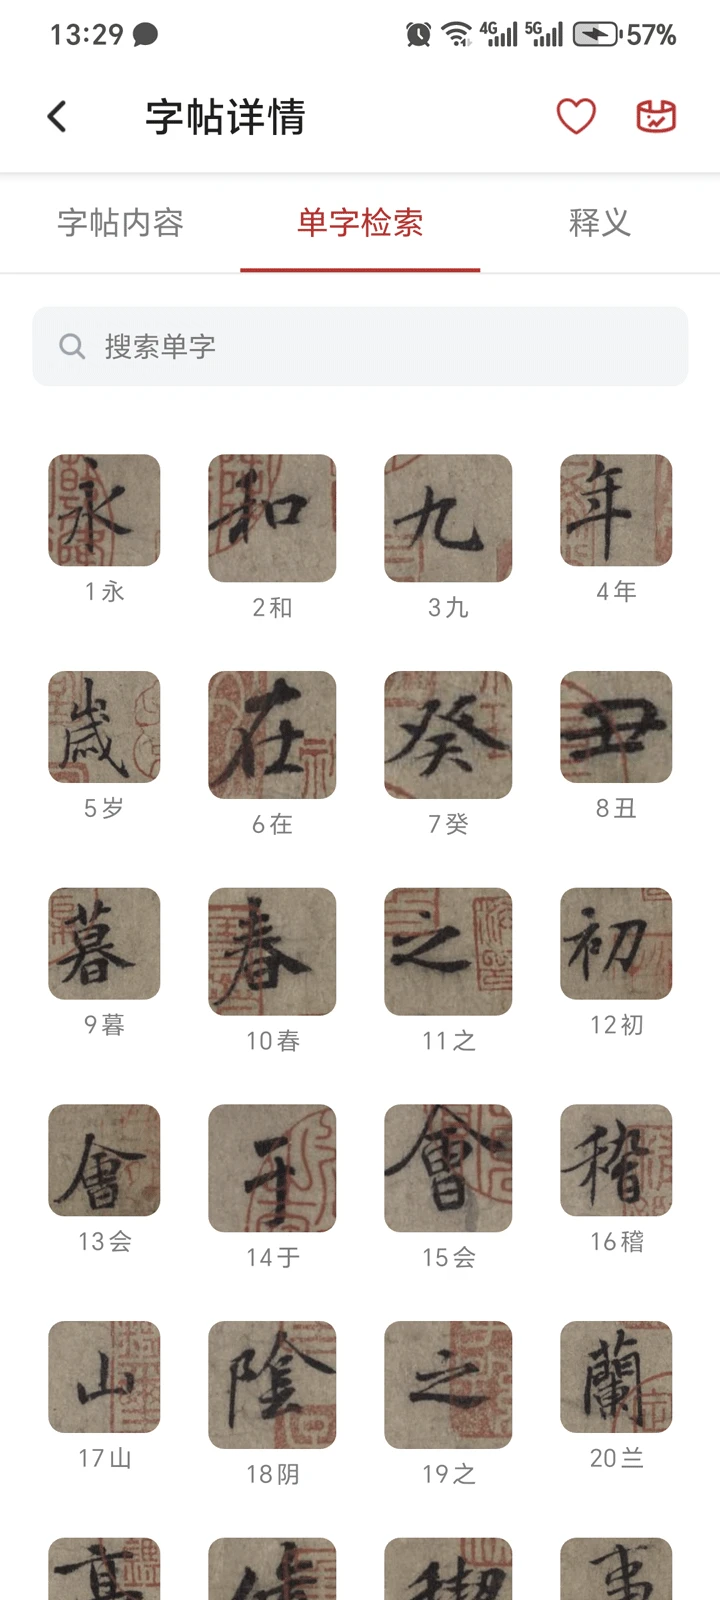 13:29 4G 5G 57%
字帖详情
字帖内容 单字检索 释义
搜索单字
永 和 九 年
1永 2和 3九 4年
歲 在 癸 丑
5岁 6在 7癸 8丑
暮 春 之 初
9暮 10春 11之 12初
會 于 會 稽
13会 14于 15会 16稽
山 陰 之 蘭
17山 18阴 19之 20兰